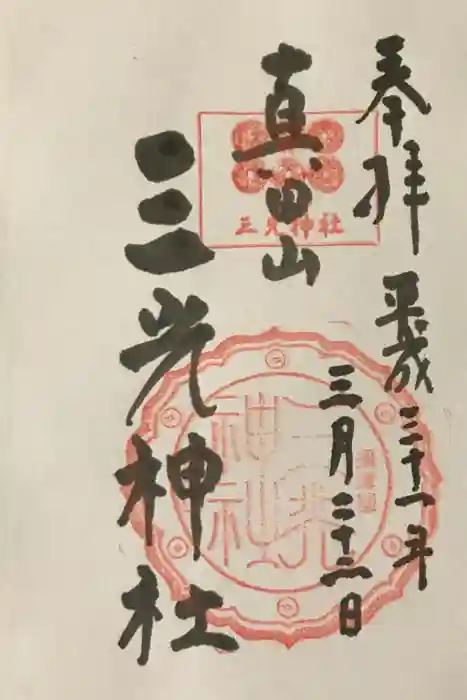 奉拝
平成三十一年
三月二十六日
真田山
三光神社
三光神社
三光神社